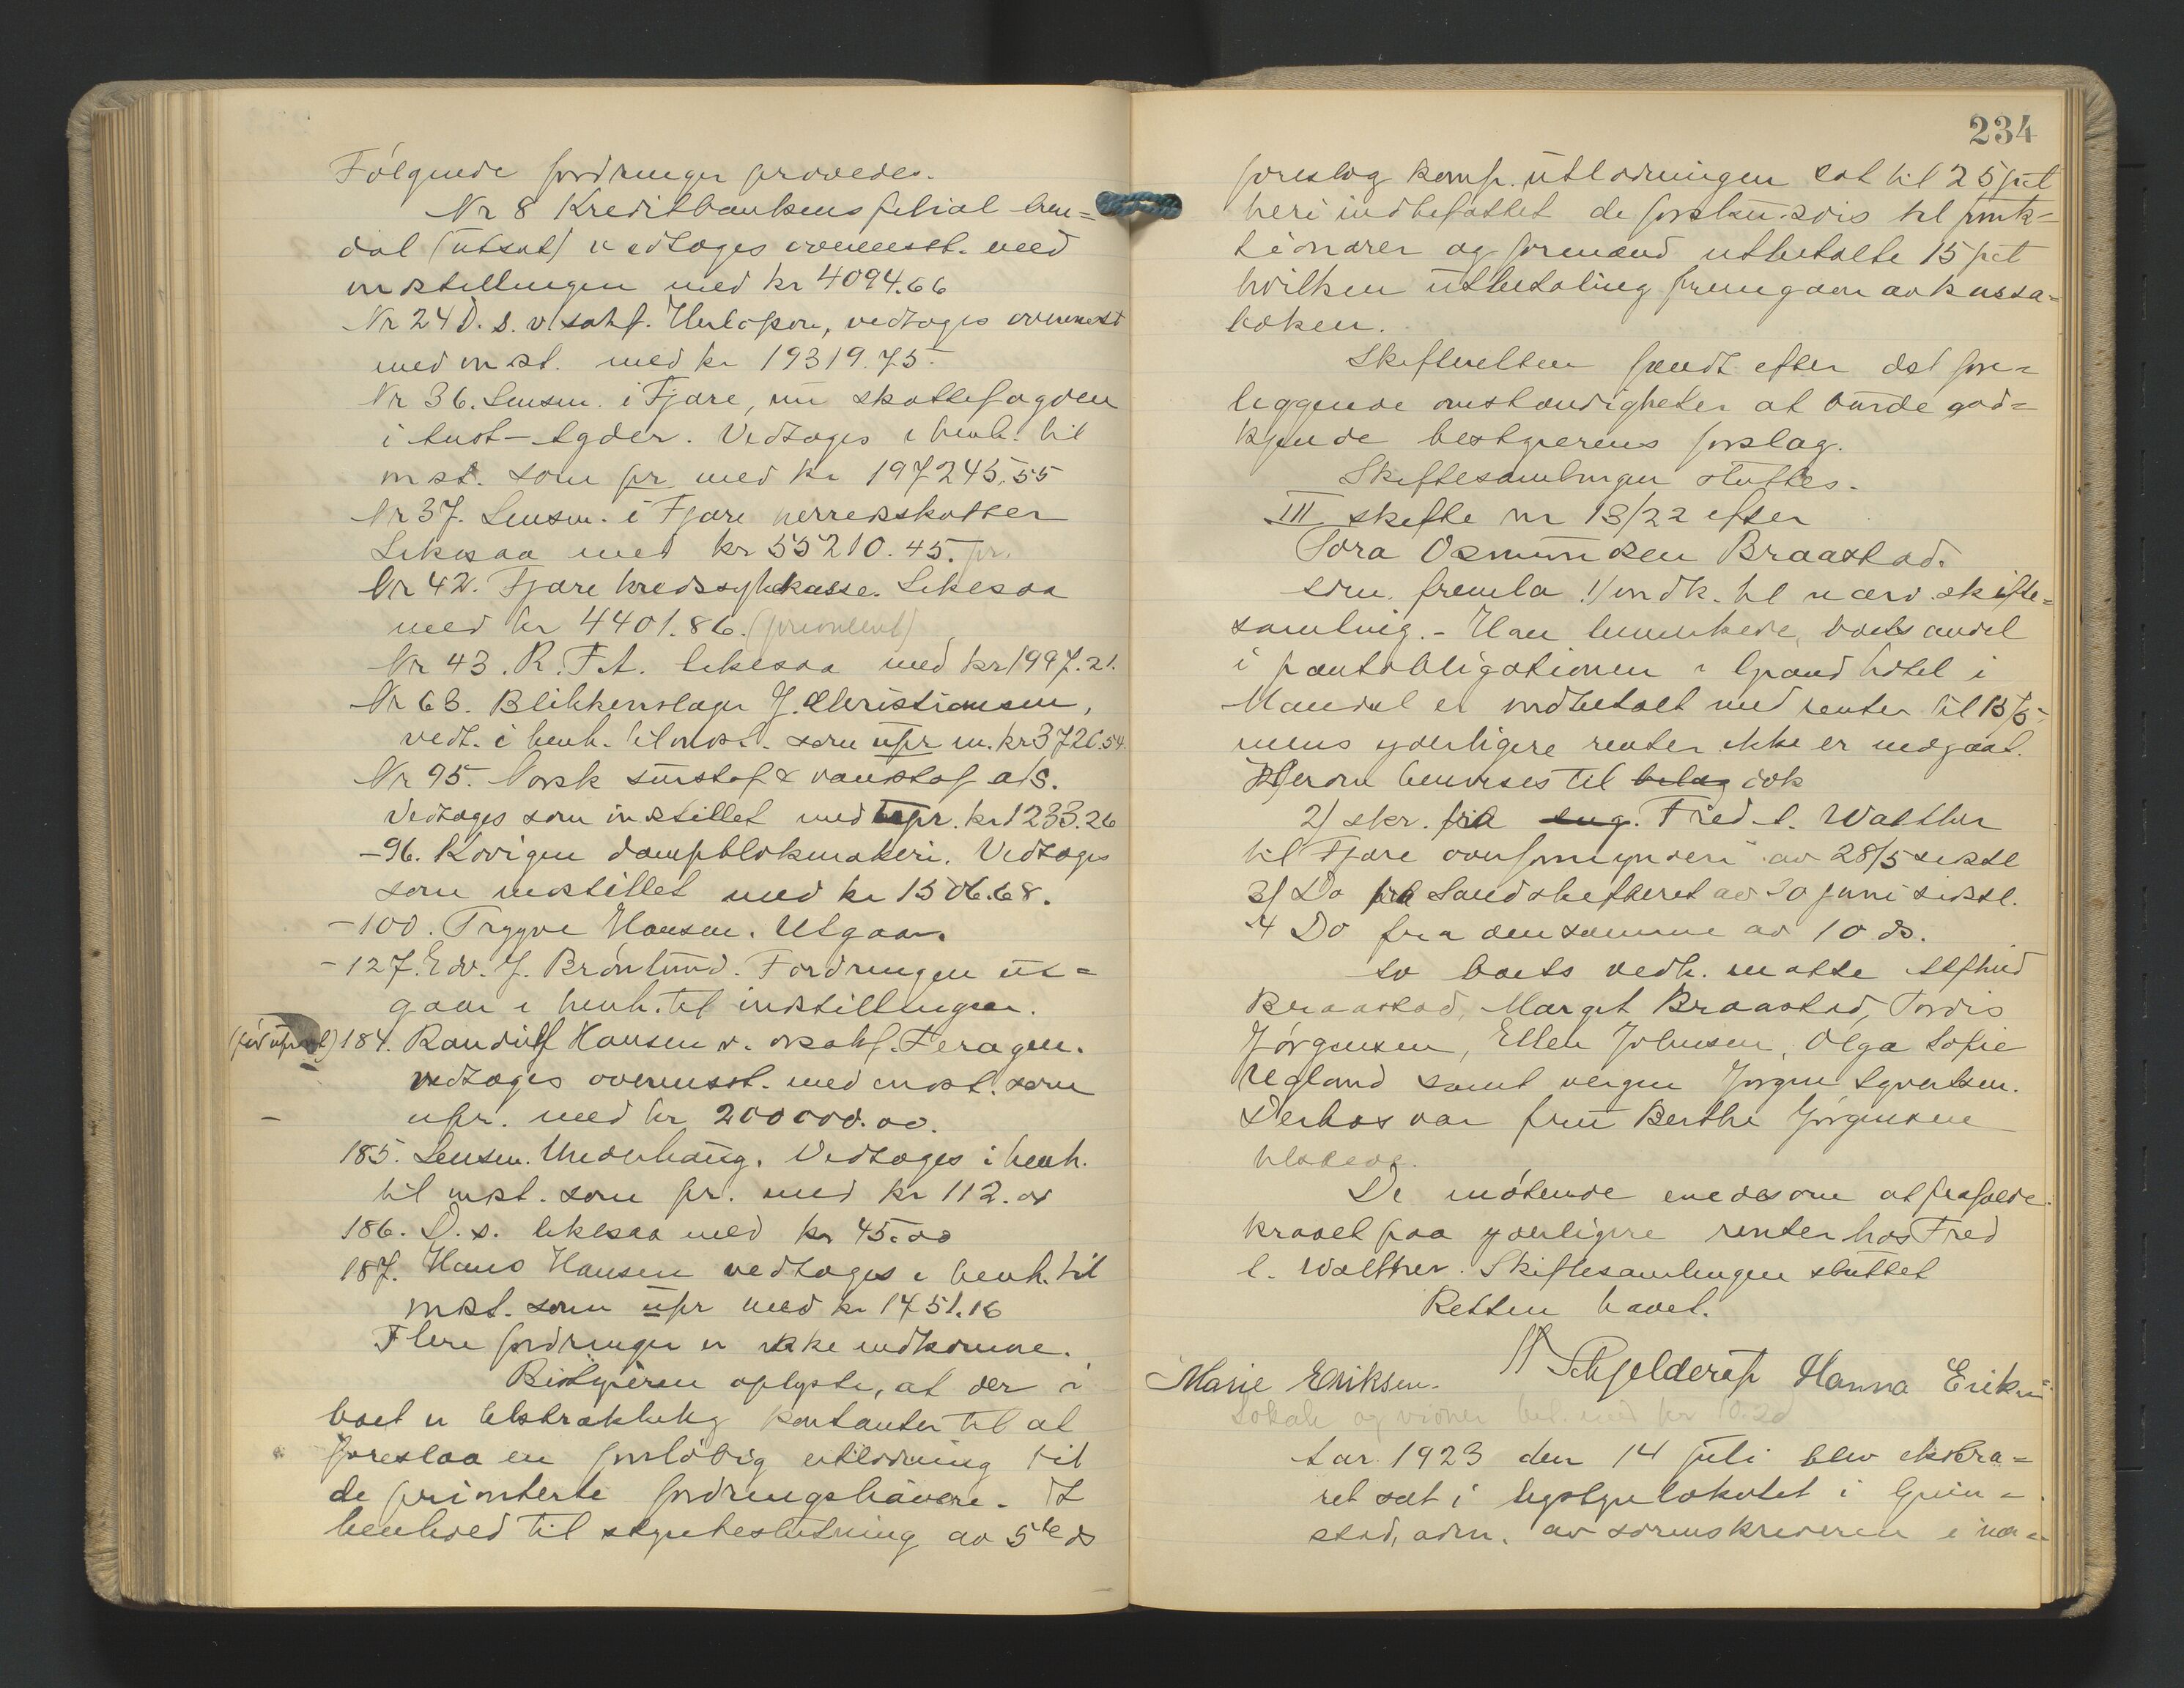 Følgende fordringer prøvedes.
Nr 8 Kreditbankens filial Aren=
dal (utsat) vedtoges overensst. med
instillingen med kr 4094.66
Nr 24 D. s. v. sakf. vedtoges overensst
med inst. med kr 19319.75.
Nr 36. Lensm. i Fjære, nu skattefogden
i Aust-Agder. Vedtoges i henh. til
inst. som pr med kr 197245.55
Nr 37. Lensm. i Fjære herredskatter
Likesaa med kr 55210.45. pr.
Nr 42. Fjære kredssykekasse. Likesaa
med kr 4401.86. (prioritert)
Nr 43. R.F.A. likesaa med kr 1997.21.
Nr 68. Blikkenslager J. Christiansen,
vedt. i henh. til inst. som upr m. kr 3726.54
Nr 95. Norsk surstof & vanstof a/s.
Vedtoges som instillet med upr. kr 1233.26
-96. Kovigen dampblokmakeri. Vedtoges
som instillet med kr 1506.68.
-100. Trygve Hansen. Utgaar.
-127. Edv. J. Brønlund. Fordringen ut=
gaar i henh. til instillingen.
184. Randulf Hansen v. o.r.sakf. Feragen.
vedtoges overensst. med inst. som
upr. med kr 200000.00.
185. Lensm. Underhaug. Vedtoges i henh.
til inst. som pr. med kr 112.00
186. D. s. likesaa med kr 45.00
187. Hans Hansen vedtoges i henh. til
inst. som upr med kr 1451.16
Flere fordringer er ikke indkomne.
Bestyreren oplyste, at der i
boet er tilstrækkelig kontanter til at
foreslaa en foreløbig utlodning til
de prioriterte fordringshavere. I
henhold til styrebeslutning av 5te ds
234
foreslog komp. utlodningen sat til 25 pct
heri indbefattet de forskudsvis til funk=
tionærer og formænd utbetalte 15 pct
hvilken utbetaling fremgaar av kassa=
boken.
Skifteretten fandt efter de fore=
liggende omstændigheter at burde god=
kjende bestyrerens forslag.
Skiftesamlingen sluttes.
III skifte nr 18/22 efter
Tora Osmundsen Braastad.
som fremla 1/ indk. til nærv. skifte=
samling. - Han bemerkede, boets andel
i pantobligationen i Grand hotel i
Mandal er indbetalt med renter til 15/5
mens yderligere renter ikke er indgaat.
Herom henvises til bilag dok
2/ skr. fra Fred. L. Walther
til Fjære overformynderi av 28/5 sidstl
3/ Do fra Sandskifteret av 20 juni sidstl.
4 Do fra den samme av 10 ds.
Av boets vedk. møtte Alfhild
Braastad, Margit Braastad, Tordis
Jørgensen, Ellen Johnsen, Olga Sofie
Regland samt vergen Jørgen Syvertsen.
Derhos var fru Berthe Jørgensen
tilstede.
De møtende enedes om at frafalde
kravet paa yderligere renter hos Fred
L. Walther. Skiftesamlingen sluttet
Retten hævet.
Schjelderup
Marie Eriksen. Hanna Eriksen
Lokale og vidner bet. med kr 10.20
Aar 1923 den 14 juli blev ekstra=
ret sat i tingstuelokalet i Grim=
stad, adm. av sorenskriveren i Ne=